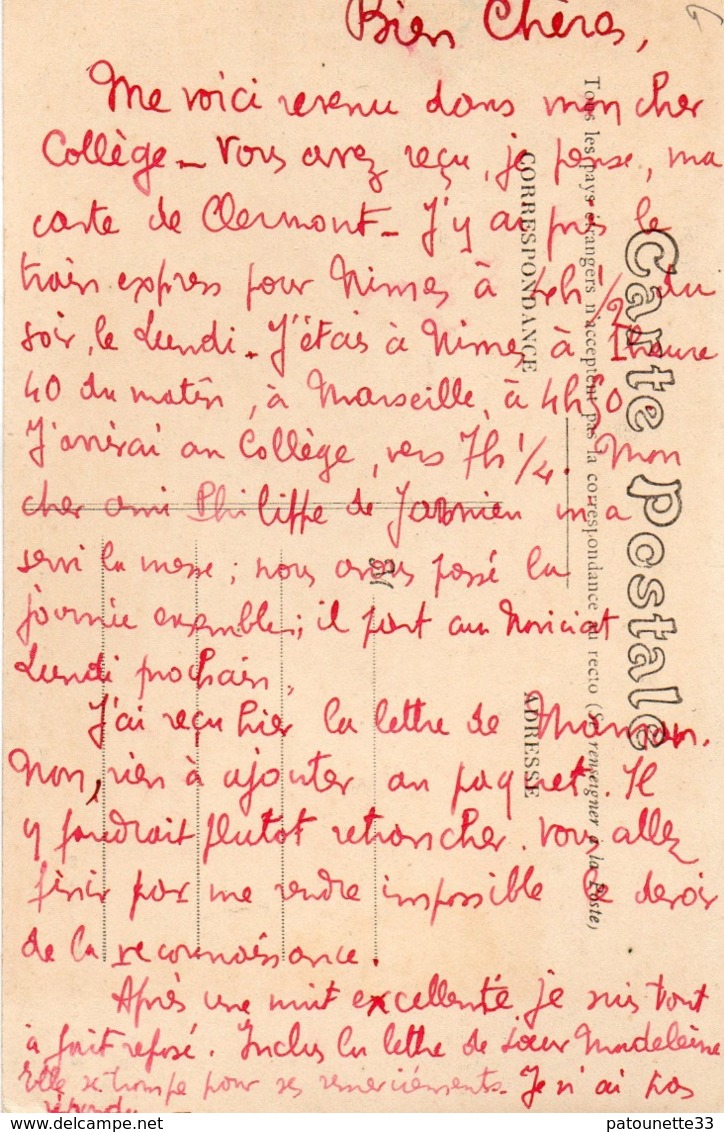 Bien Chères,
Me voici revenu dans mon cher
Collège - Vous avez reçu, je pense, ma
carte de Clermont - J'y ai pris le
train express pour Nimes à 4h 1/2 du
soir, le Lundi - J'étais à Nimes à 1 heure
40 du matin, à Marseille, à 4h 0.
J'arrivai au Collège, vers 7h 1/4. Mon
cher ami Philippe de m'a
servi la messe ; nous avons passé la
journée ensemble ; il part au Noviciat
Lundi prochain,
J'ai reçu hier la lettre de Maman.
Non, rien à ajouter au paquet. Il
y faudrait plutot retrancher. Vous allez
finir par me rendre impossible le devoir
de la reconnaissance.
Après une nuit excellente je suis tout
à fait reposé. Inclus la lettre de Sœur Madeleine
Elle se trompe pour ses remerciements. Je n'ai pas
répondu
Carte Postale
Tous les pays étrangers n'acceptent pas la correspondance au recto (Se renseigner à la Poste)
CORRESPONDANCE
ADRESSE
patounette33